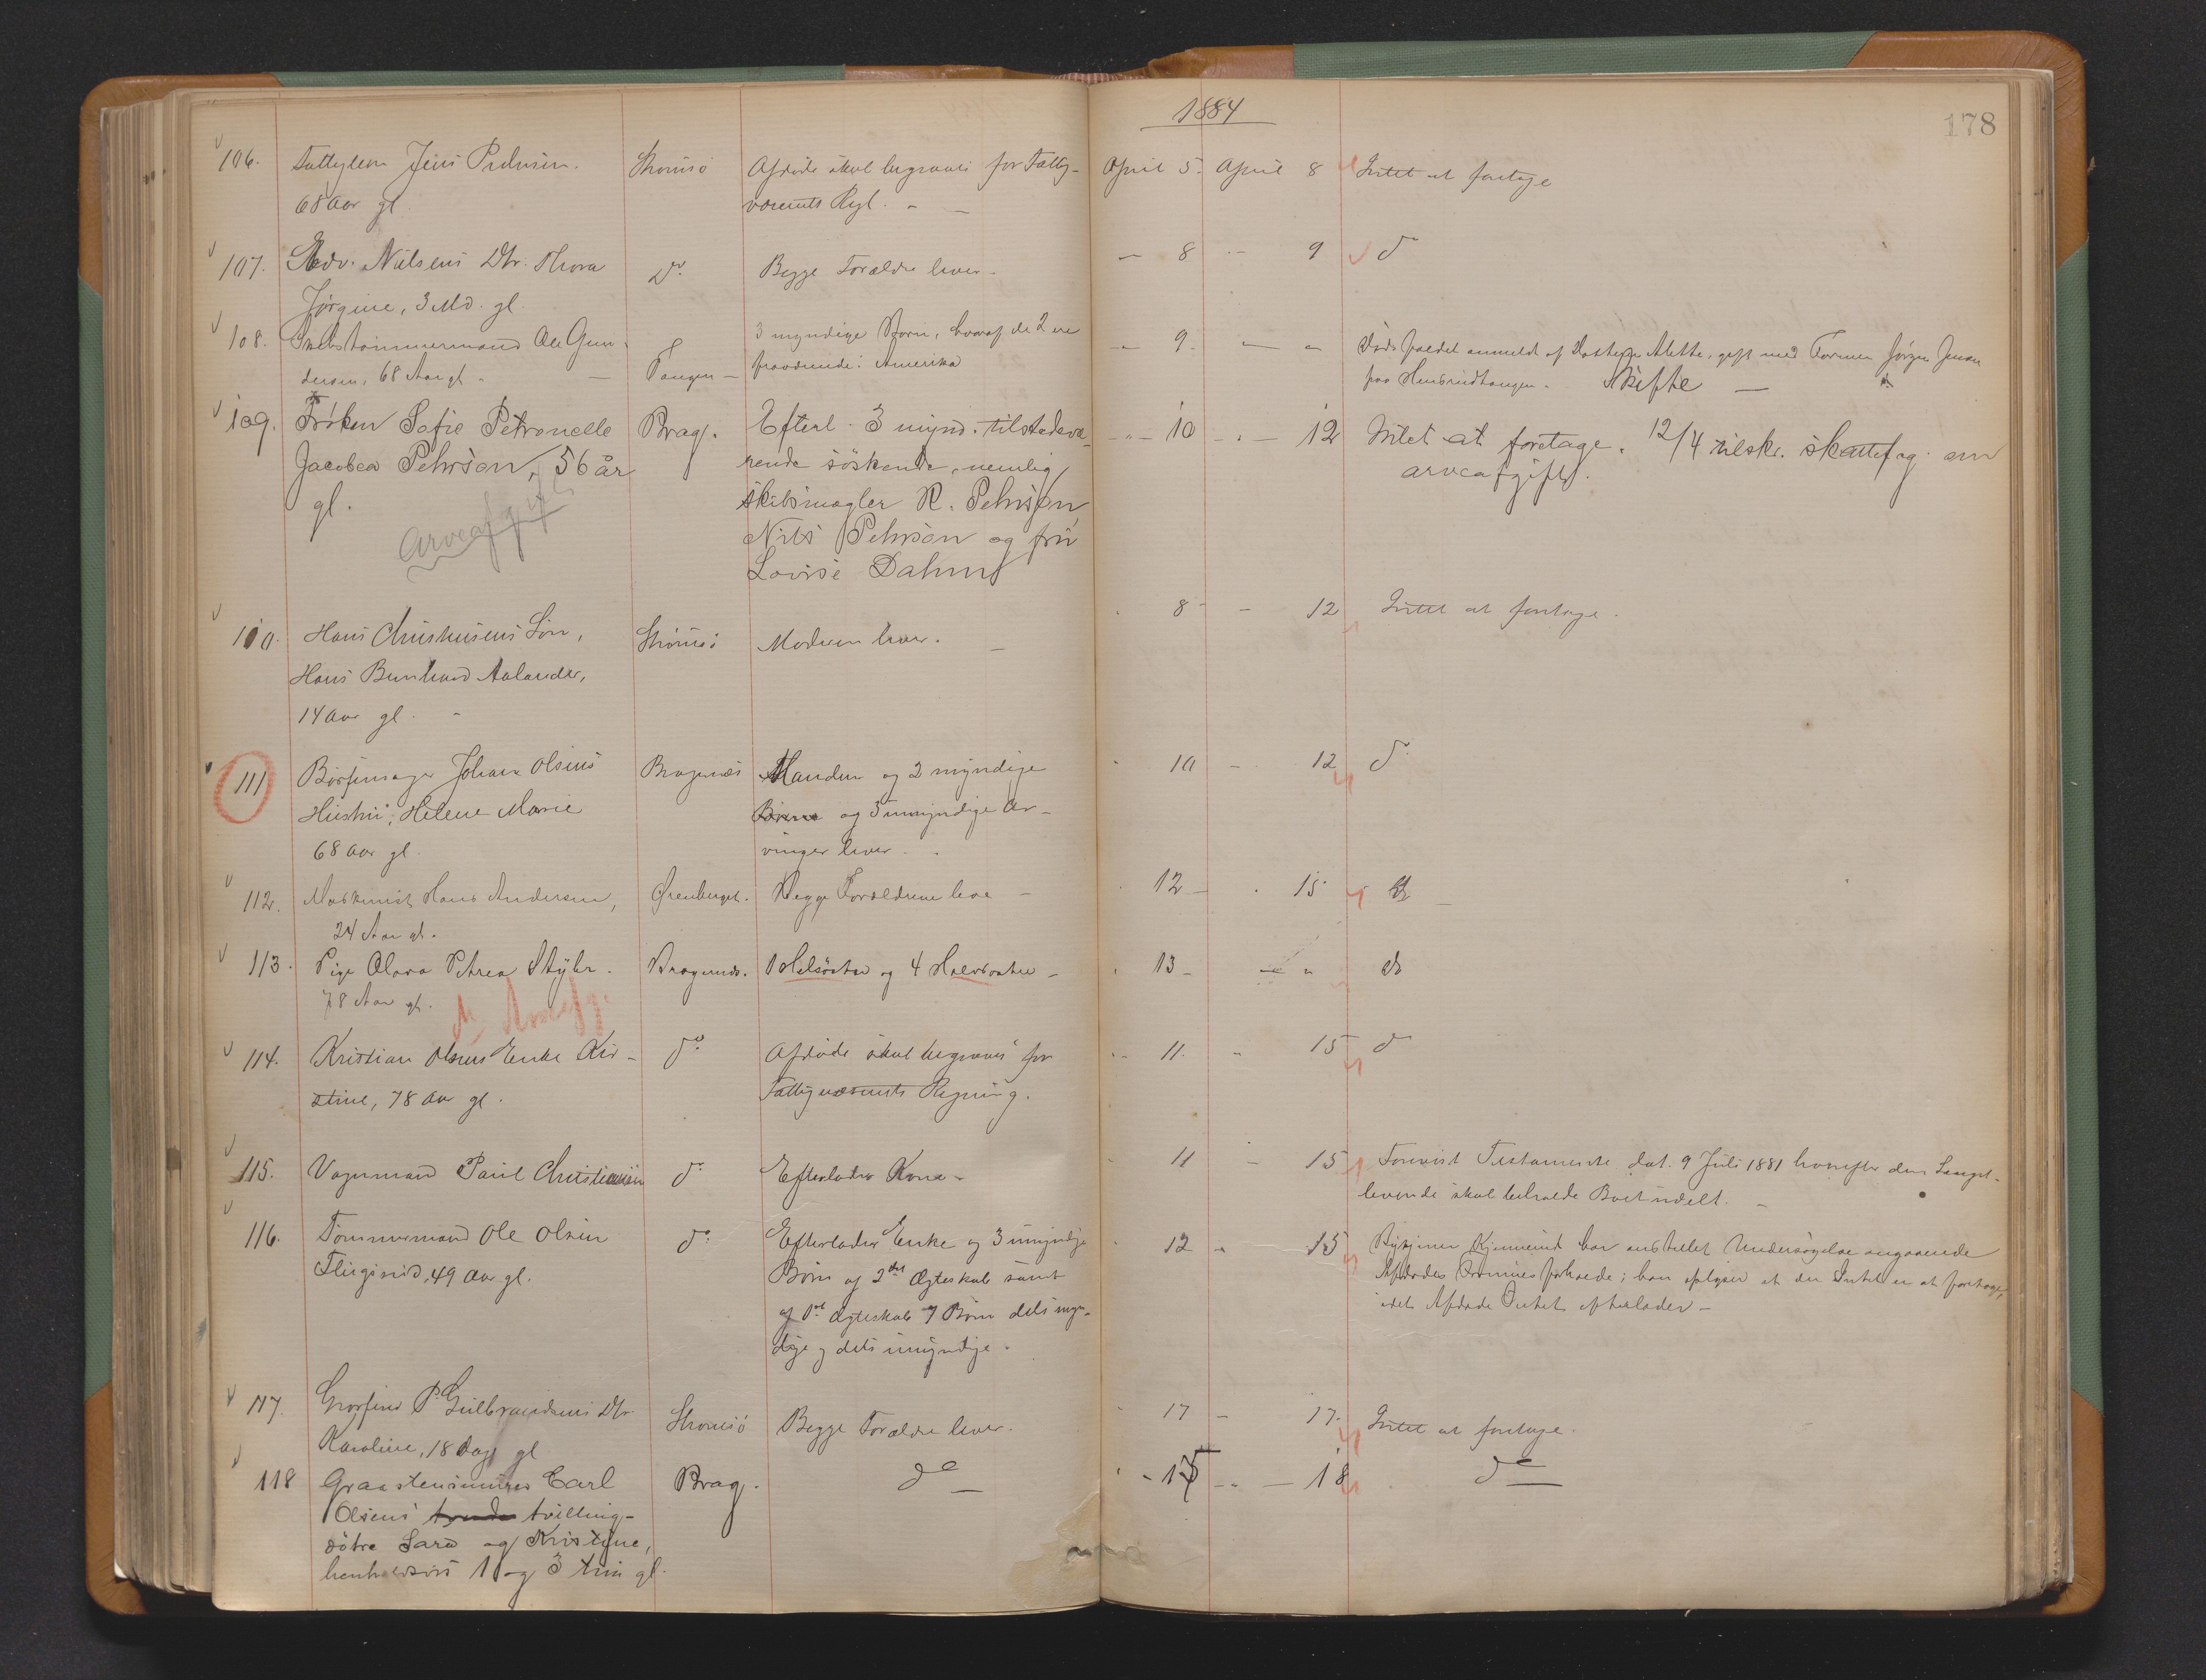 1884
178
106. Fattiglem Jens Pedersen. Strømsø Afdøde skal begraves for Fattig- April 5. April 8 Intet at foretage
68 Aar gl. væsenets Regl. -
107. Edv. Nielsens Dtr. Thora Do. Begge Forældre lever. - 8 - 9 do
Jørgine, 3 Md. gl
108. Skibstømmermand Ole Gun- Tangen - 3 myndige Børn, hvoraf de 2 ere - 9. - " Dødsfaldet anmeldt af Datteren Alette, gift med Formen Jørgen Jensen
dersen, 68 Aar gl. - fraværende i Amerika paa . Skifte -
109. Frøken Sofie Petronelle Brag. Efterl. 3 mynd. tilstedevæ- - " - 10 - " - 12 Intet at foretage. 12/4 tilskr. skattefog. om
Jacobea Pehrson, 56 år rende søskende, nemlig arveafgift.
gl. skibsmægler R. Pehrson
Arveafgift Nils Pehrson og fru
Lovise Dahm
110. Hans Christensens Søn, Strømsø Moderen lever. - 8 - - 12 Intet at foretage.
Hans Bernhard Aalander,
14 Aar gl. -
111 Børstemager Johan Olsens Bragernæs Manden og 2 myndige - 10 - 12 do
Hustru, Helene Marie Børn og 3 umyndige Ar-
68 Aar gl. vinger lever.
112. Maskinist Hans Andersen, Grenberget. Begge Forældrene leve - 12 - 15 do
24 Aar gl.
113. Pige Olava Petrea Stybr. Bragernæs. 1 Helsøster og 4 Halvsøstre - 13 - - " do
78 Aar gl. Arveafg.
114. Kristian Olsens Enke Kri- do Afdøde skal begraves for - 11. - 15 do
stine, 78 Aar gl. Fattigvæsenets Regning.
115. Vognmand Paul Christiansen do Efterlader Kone. - 11 - 15 Forevist Testamente dat. 9 Juli 1881 hvorefter den Længst-
levende skal beholde Boet udelt. -
116. Tømmermand Ole Olsen do Efterlader Enke og 3 umyndige - 12 - 15 Bytjener Kjennerud har anstillet Undersøgelse angaaende
Flugsrud, 49 Aar gl. Børn af 2det Ægteskab samt Afdødes Formuesforholde; han oplyser at der Intet er at foretage,
af 1ste Ægteskab 7 Børn dels myn- idet Afdøde Intet efterlader -
dige og dels umyndige.
117. P. Gulbrandsens Dtr. Strømsø Begge Forældre lever. - 17 - 17. Intet at foretage.
Karoline, 18 Dage gl
118 Graastensmurer Carl Brag. do - 15 - " - 18 do
Olsens tvende tvilling-
døtre Sara og Kristine,
henholdsvis 1 og 3 tim gl.